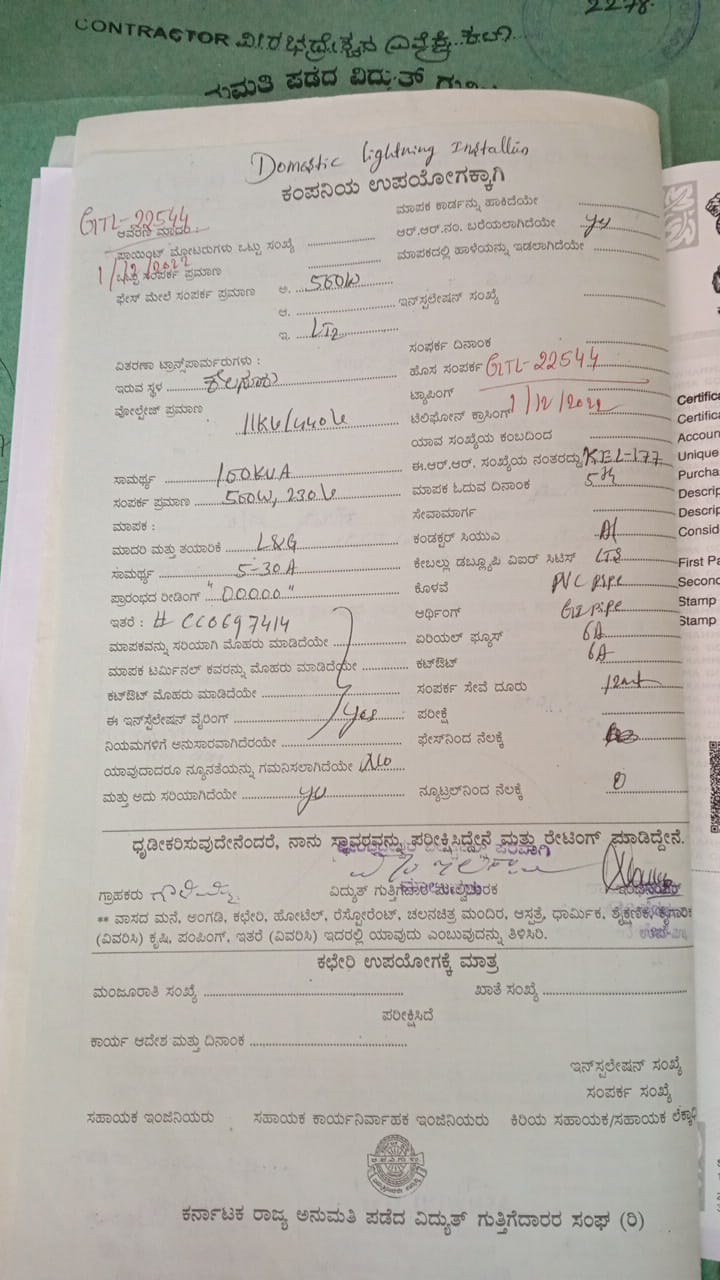 2278.
CONTRACTOR ವೀರಭದ್ರೇಶ್ವರ
ಪಡೆದ ವಿದ್ಯುತ್
Domestic lightning
ಕಂಪನಿಯ ಉಪಯೋಗಕ್ಕಾಗಿ
GTL-22544
ಮಾಪಕ ಕಾರ್ಡನ್ನು ಹಾಕಿದೆಯೇ
ಆವರಣ ಮಾದರಿ
ಆರ್.ಆರ್.ನಂ. ಬರೆಯಲಾಗಿದೆಯೇ yes
ಪಾಯಿಂಟ್ ಮೋಟರುಗಳು ಒಟ್ಟು ಸಂಖ್ಯೆ
ಮಾಪಕದಲ್ಲಿ ಹಾಳೆಯನ್ನು ಇಡಲಾಗಿದೆಯೇ
1/12/2022
ಒಟ್ಟು ಸಂಪರ್ಕ ಪ್ರಮಾಣ
ಫೇಸ್ ಮೇಲೆ ಸಂಪರ್ಕ ಪ್ರಮಾಣ ಅ. 560W
ಆ. ಇನ್‌ಸ್ಟಲೇಷನ್ ಸಂಖ್ಯೆ
ಇ. LT2
ವಿತರಣಾ ಟ್ರಾನ್ಸ್‌ಪಾರ್ಮರುಗಳು : ಸಂಪರ್ಕ ದಿನಾಂಕ
ಇರುವ ಸ್ಥಳ ಹೊಸ ಸಂಪರ್ಕ GTL-22544
ವೋಲ್ಟೇಜ್ ಪ್ರಮಾಣ ಟ್ಯಾಪಿಂಗ್
11KV/440V ಟೆಲಿಫೋನ್ ಕ್ರಾಸಿಂಗ್ 1/12/2022
ಯಾವ ಸಂಖ್ಯೆಯ ಕಂಬದಿಂದ
ಸಾಮರ್ಥ್ಯ 100KVA ಈ.ಆರ್.ಆರ್. ಸಂಖ್ಯೆಯ ನಂತರದ್ದು KEL-177
ಸಂಪರ್ಕ ಪ್ರಮಾಣ 560W, 230V ಮಾಪಕ ಓದುವ ದಿನಾಂಕ 5th
ಮಾಪಕ : ಸೇವಾಮಾರ್ಗ
ಮಾದರಿ ಮತ್ತು ತಯಾರಿಕೆ L&G ಕಂಡಕ್ಟರ್ ಸಿಯುಎ Al
ಸಾಮರ್ಥ್ಯ 5-30A ಕೇಬಲ್ಲು ಡಬ್ಲ್ಯೂಪಿ ವಿಐರ್ ಸಿಟಿಸ್
ಪ್ರಾರಂಭದ ರೀಡಿಂಗ್ "00000" ಕೊಳವೆ PVC pipe
ಇತರೆ : # CC0697414 ಆರ್ಥಿಂಗ್ GI pipe
ಮಾಪಕವನ್ನು ಸರಿಯಾಗಿ ಮೊಹರು ಮಾಡಿದೆಯೇ ಏರಿಯಲ್ ಫ್ಯೂಸ್ 6A
ಮಾಪಕ ಟರ್ಮಿನಲ್ ಕವರನ್ನು ಮೊಹರು ಮಾಡಿದೆಯೇ ಕಟ್‌ಔಟ್ 6A
ಕಟ್‌ಔಟ್ ಮೊಹರು ಮಾಡಿದೆಯೇ ಸಂಪರ್ಕ ಸೇವೆ ದೂರು
ಈ ಇನ್‌ಸ್ಟೆಲೇಷನ್ ವೈರಿಂಗ್ yes ಪರೀಕ್ಷೆ
ನಿಯಮಗಳಿಗೆ ಅನುಸಾರವಾಗಿದೆರಯೇ ಫೇಸ್‌ನಿಂದ ನೆಲಕ್ಕೆ
ಯಾವುದಾದರೂ ನ್ಯೂನತೆಯನ್ನು ಗಮನಿಸಲಾಗಿದೆಯೇ No
ಮತ್ತು ಅದು ಸರಿಯಾಗಿದೆಯೇ yes ನ್ಯೂಟ್ರಲ್‌ನಿಂದ ನೆಲಕ್ಕೆ 0
ಧೃಡೀಕರಿಸುವುದೇನೆಂದರೆ, ನಾನು ಸ್ಥಾವರವನ್ನು ಪರೀಕ್ಷಿಸಿದ್ದೇನೆ ಮತ್ತು ರೇಟಿಂಗ್ ಮಾಡಿದ್ದೇನೆ.
ಗ್ರಾಹಕರು ವಿದ್ಯುತ್ ಗುತ್ತಿಗೆದಾರ
** ವಾಸದ ಮನೆ, ಅಂಗಡಿ, ಕಛೇರಿ, ಹೋಟೆಲ್, ರೆಸ್ಟೋರೆಂಟ್, ಚಲನಚಿತ್ರ ಮಂದಿರ, ಆಸ್ಪತ್ರೆ, ಧಾರ್ಮಿಕ, ಶೈಕ್ಷಣಿಕ, ಕೈಗಾರಿಕ
(ವಿವರಿಸಿ) ಕೃಷಿ, ಪಂಪಿಂಗ್, ಇತರೆ (ವಿವರಿಸಿ) ಇದರಲ್ಲಿ ಯಾವುದು ಎಂಬುವುದನ್ನು ತಿಳಿಸಿರಿ.
ಕಛೇರಿ ಉಪಯೋಗಕ್ಕೆ ಮಾತ್ರ
ಮಂಜೂರಾತಿ ಸಂಖ್ಯೆ ಖಾತೆ ಸಂಖ್ಯೆ
ಪರೀಕ್ಷಿಸಿದೆ
ಕಾರ್ಯ ಆದೇಶ ಮತ್ತು ದಿನಾಂಕ
ಇನ್‌ಸ್ಪಲೇಷನ್ ಸಂಖ್ಯೆ
ಸಂಪರ್ಕ ಸಂಖ್ಯೆ
ಸಹಾಯಕ ಇಂಜಿನಿಯರು ಸಹಾಯಕ ಕಾರ್ಯನಿರ್ವಾಹಕ ಇಂಜಿನಿಯರು ಕಿರಿಯ ಸಹಾಯಕ/ಸಹಾಯಕ
ಕರ್ನಾಟಕ ರಾಜ್ಯ ಅನುಮತಿ ಪಡೆದ ವಿದ್ಯುತ್ ಗುತ್ತಿಗೆದಾರರ ಸಂಘ (ರಿ)
Certifica
Certific
Accoun
Unique
Purcha
Descrip
Descri
Consid
First Pa
Second
Stamp
Stamp